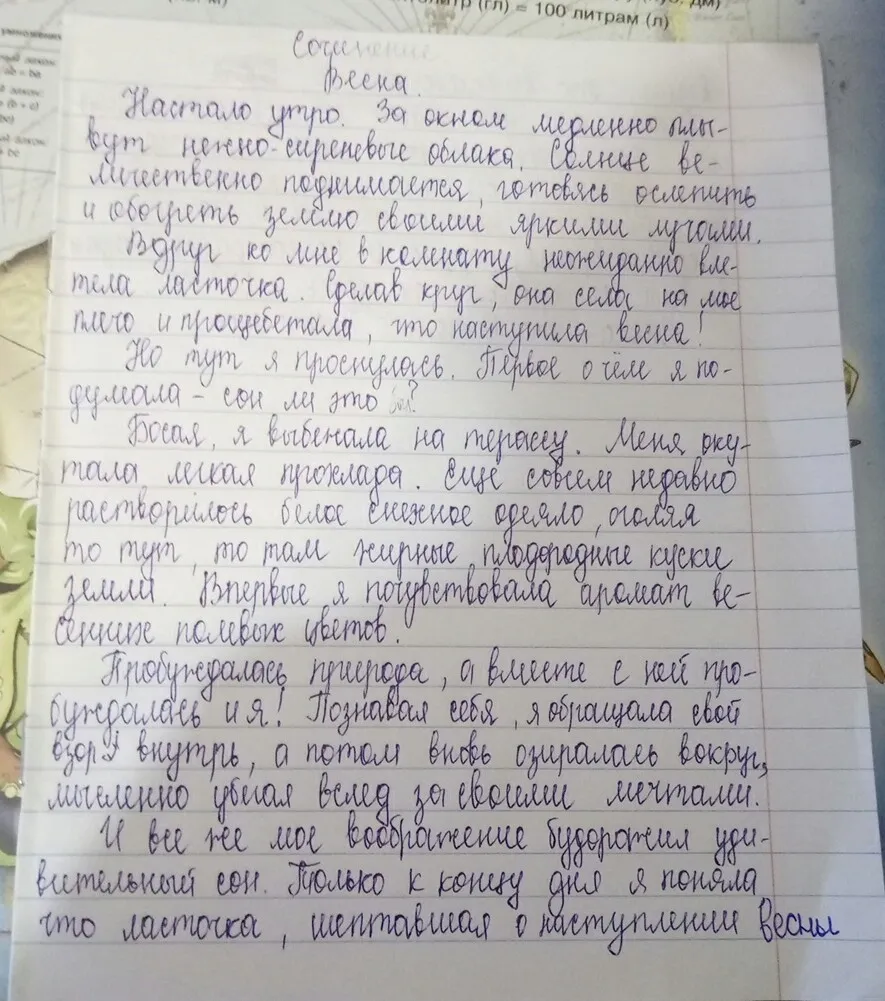 тр (гл) = 100 литрам (л)
Сочинение
Весна.
Настало утро. За окном медленно плы-
вут нежно-сиреневые облака. Солнце ве-
личественно поднимается, готовясь ослепить
и обогреть землю своими яркими лучами.
Вдруг ко мне в комнату неожиданно вле-
тела ласточка. Сделав круг, она села на мое
плечо и прощебетала, что наступила весна!
Но тут я проснулась. Первое о чём я по-
думала – сон ли это ?
Босая, я выбежала на терассу. Меня оку-
тала легкая прохлада. Ещё совсем недавно
растворилось белое снежное одеяло, оголяя
то тут, то там жирные, плодородные куски
земли. Впервые я почувствовала аромат ве-
сенних полевых цветов.
Пробуждалась природа, а вместе с ней про-
буждалась и я! Познавая себя, я обращала свой
взор внутрь, а потом вновь озиралась вокруг,
мысленно убегая вслед за своими мечтами.
И все же мое воображение будоражил уди-
вительный сон. Только к концу дня я поняла
что ласточка, шептавшая о наступлении весны